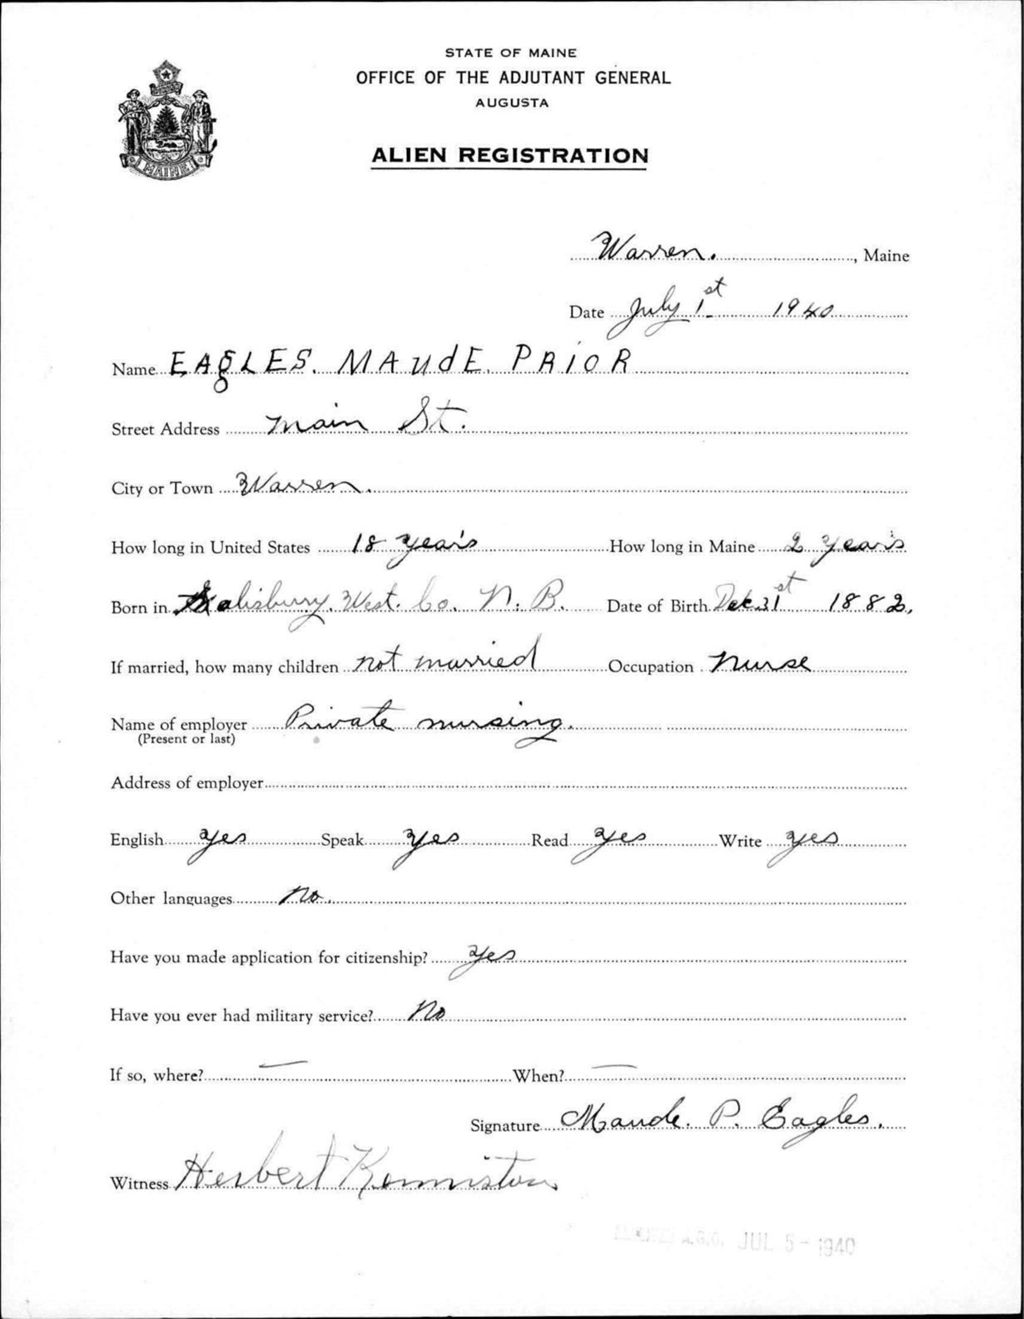 STATE OF MAINE
OFFICE OF THE ADJUTANT GENERAL
AUGUSTA
ALIEN REGISTRATION
MAINE
Warren. , Maine
Date July 1st 1940
Name EAGLES. MAUdE. PRiOR
Street Address Main St.
City or Town Warren.
How long in United States 18 years How long in Maine 2 years
Born in Salisbury. West. Co. N. B. Date of Birth Dec. 31st 1882.
If married, how many children not married Occupation Nurse
Name of employer Private nursing.
(Present or last)
Address of employer
English yes Speak yes Read yes Write yes
Other languages no.
Have you made application for citizenship? yes
Have you ever had military service? No
If so, where? — When? —
Signature Maude. P. Eagles.
Witness Herbert Kenniston
A.G.O. JUL 5 - 1940